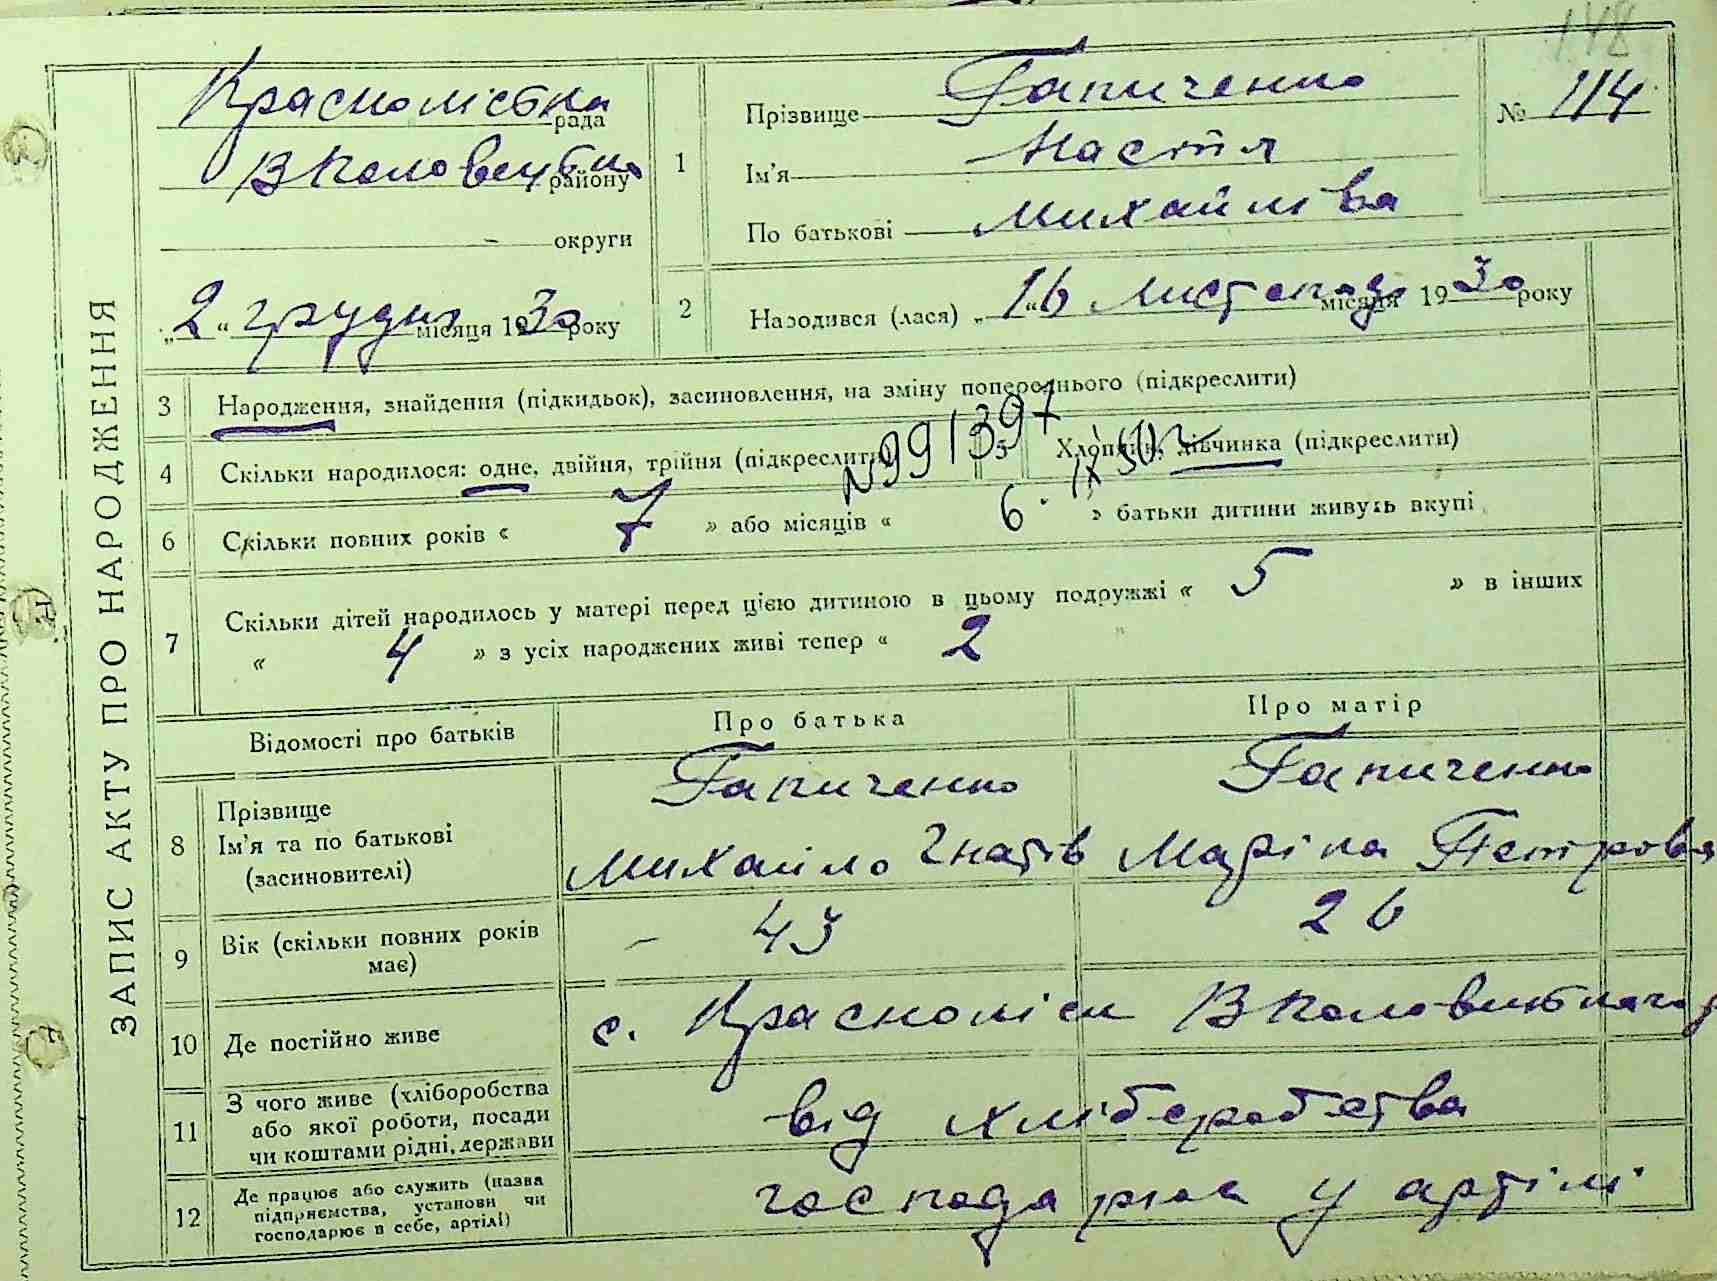 148
ЗАПИС АКТУ ПРО НАРОДЖЕННЯ
Краснолісска рада
В Половецько району
округи
„2“ грудня місяця 1930 року
1
Прізвище Гапиченко
Ім'я Настя
По батькові Михайлівна
№ 114
2 Народився (лася) „16“ листопада місяця 1930 року
3 Народження, знайдення (підкидьок), засиновлення, на зміну попереднього (підкреслити)
4 Скільки народилося: одне, двійня, трійня (підкреслити) 5 Хлопчик, дівчинка (підкреслити)
№991397
6 Скільки повних років « 7 » або місяців « 6 » батьки дитини живуть вкупі
7 Скільки дітей народилось у матері перед цією дитиною в цьому подружжі « 5 » в інших
« 4 » з усіх народжених живі тепер « 2 "
Відомості про батьків Про батька Про матір
8 Прізвище
Ім'я та по батькові
(засиновителі)
Гапиченко Гапиченко
Михайло Гнатів Маріна Петрова
9 Вік (скільки повних років має) 43 26
10 Де постійно живе с. Красноліси
11 З чого живе (хліборобства
або якої роботи, посади
чи коштами рідні, держави
від хліборобства
12 Де працює або служить (назва
підприємства, установи чи
господарює в себе, артілі)
господарює у артілі